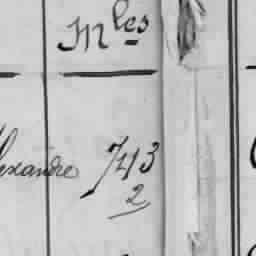 Mles
lexandre 743
2